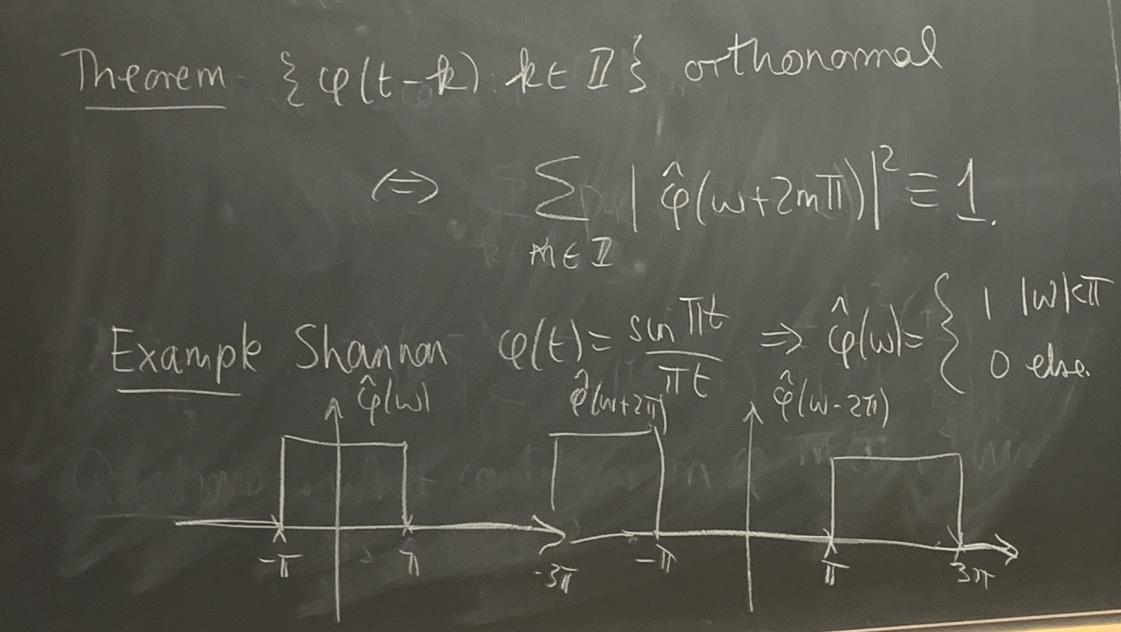 Theorem {φ(t-k): k∈ℤ} orthonormal
⇔ ∑ |φ̂(ω+2mπ)|² ≡ 1.
m∈ℤ
Example Shannon φ(t) = sin πt / πt ⇒ φ̂(ω) = { 1 |ω|<π
0 else.
φ̂(ω) φ̂(ω+2π) φ̂(ω-2π)
-π π -3π -π π 3π